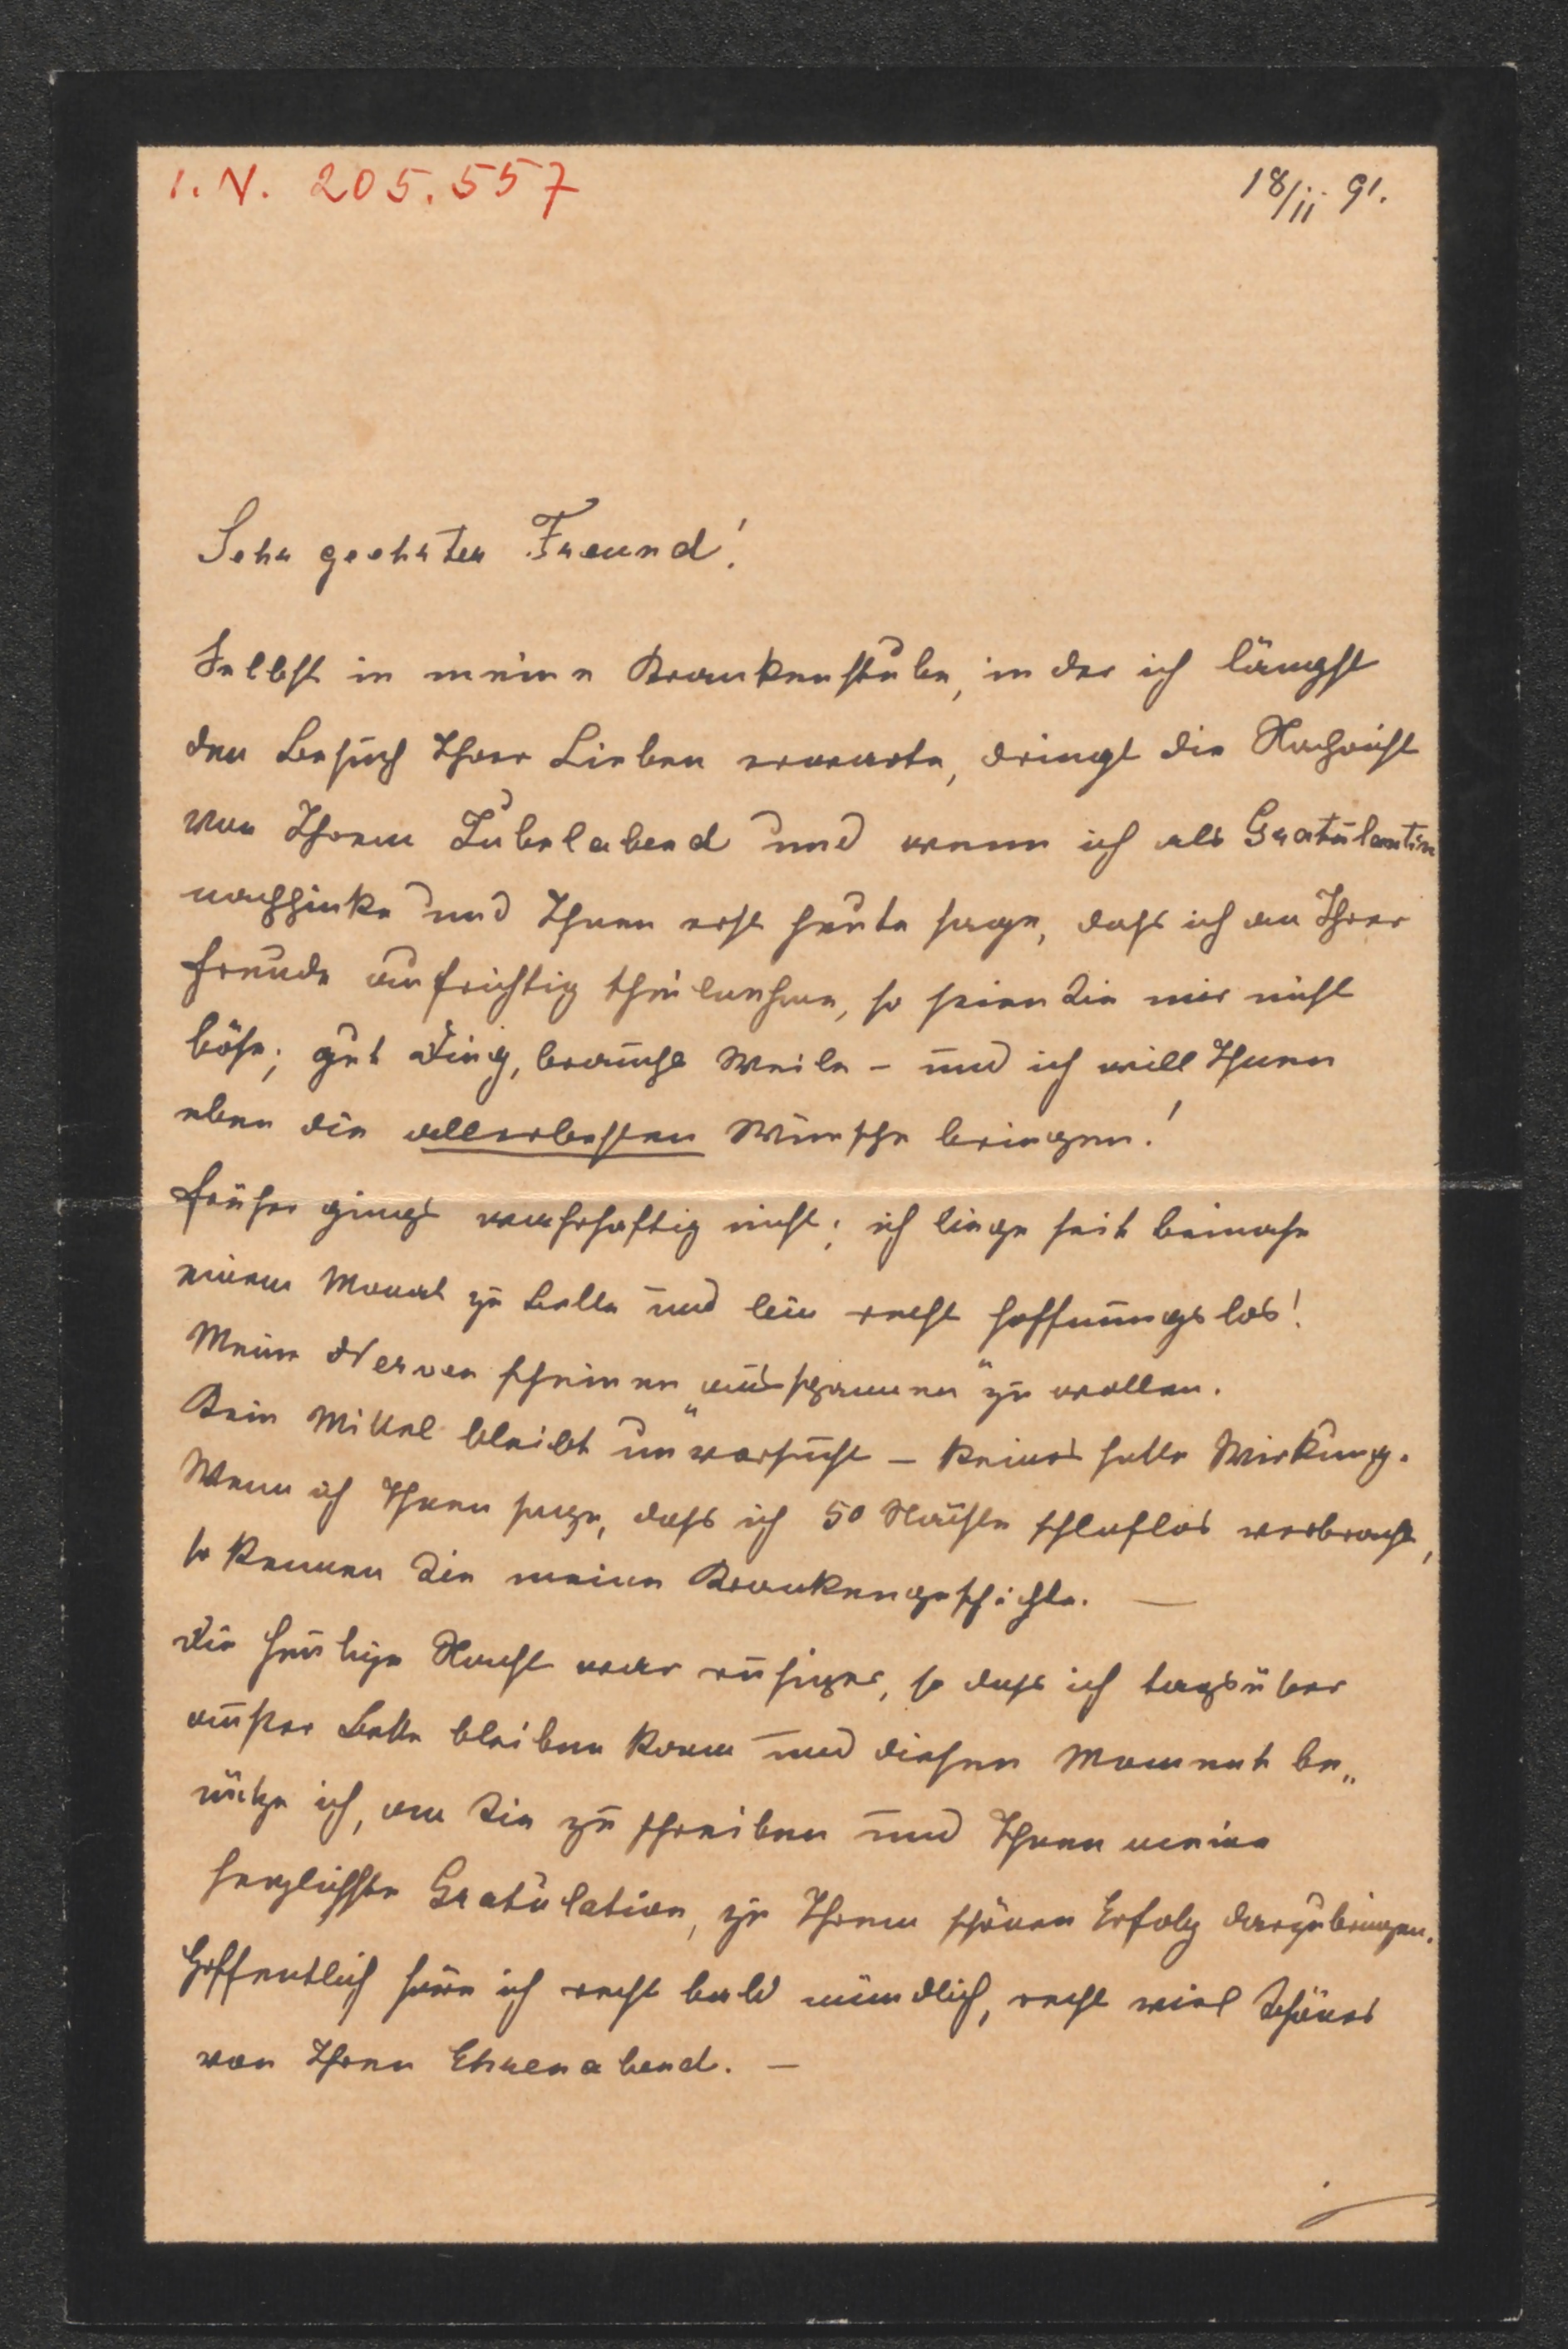 I.N. 205.557
18/II 91.
Sehr geehrter Freund!
Selbst in meine Krankenstube, in der ich längst
den Besuch Ihrer Lieben erwarte, dringt die Nachricht
von Ihrem Jubelabend und wenn ich als Gratulantin
nachhinke und Ihnen erst heute sage, dass ich an Ihrer
Freude aufrichtig theilnehme, so seien Sie mir nicht
böse; gut Ding, braucht Weile – und ich will Ihnen
eben die allerbesten Wünsche bringen!
Früher gings wahrhaftig nicht; ich liege seit beinahe
einem Monat zu Bette und bin recht hoffnungslos!
Meine Nerven scheinen „ausspannen“ zu wollen.
Kein Mittel bleibt unversucht – keines hatte Wirkung.
Wenn ich Ihnen sage, dass ich 50 Nächte schlaflos verbracht,
so kennen Sie meine Krankengeschichte. —
Die heutige Nacht war ruhiger, so dass ich tagsüber
außer Bette bleiben kann und diesen Moment be„
nütze ich, an Sie zu schreiben und Ihnen meine
herzlichste Gratulation, zu Ihrem schönen Erfolg darzubringen.
Hoffentlich höre ich recht bald mündlich, recht viel Schönes
von Ihren Ehrenabend. —